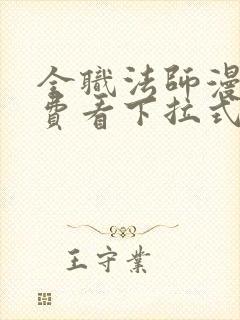 全職法師漫
費看下拉式
王守業